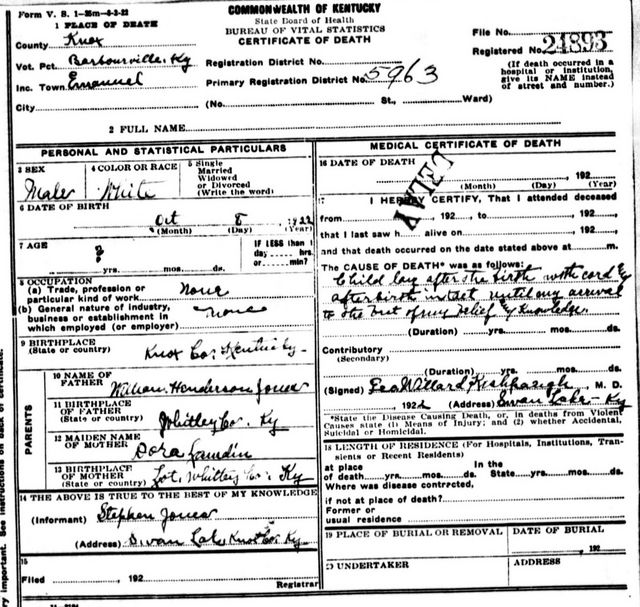 Form V. S. 1-35m-6-3-22
COMMONWEALTH OF KENTUCKY
State Board of Health
BUREAU OF VITAL STATISTICS
CERTIFICATE OF DEATH
1 PLACE OF DEATH
County Knox
Vot. Pct. Barbourville, Ky
Inc. Town Emanuel
City
Registration District No.
Primary Registration District No. 5963
(No. St., Ward)
File No.
Registered No. 24893
(If death occurred in a
hospital or institution,
give its NAME instead
of street and number.)
2 FULL NAME
PERSONAL AND STATISTICAL PARTICULARS
3 SEX
Male
4 COLOR OR RACE
White
5 Single
Married
Widowed
or Divorced
(Write the word)
6 DATE OF BIRTH
Oct 8 1922
(Month) (Day) (Year)
7 AGE
yrs. mos. ds.
IF LESS than 1
day hrs.
or min?
8 OCCUPATION
(a) Trade, profession or
particular kind of work None
(b) General nature of industry,
business or establishment in
which employed (or employer) none
9 BIRTHPLACE
(State or country)
Knox Co. Kentucky
PARENTS
10 NAME OF
FATHER William Henderson Jones
11 BIRTHPLACE
OF FATHER
(State or country) Whitley Co. Ky
12 MAIDEN NAME
OF MOTHER Dora
13 BIRTHPLACE
OF MOTHER
(State or country) Whitley Co. Ky
14 THE ABOVE IS TRUE TO THE BEST OF MY KNOWLEDGE
(Informant) Stephen Jones
(Address) Swan Lake Knox Co. Ky
15
Filed 192
Registrar
MEDICAL CERTIFICATE OF DEATH
16 DATE OF DEATH
192
(Month) (Day) (Year)
17 I HEREBY CERTIFY, That I attended deceased
from 192 , to 192
that I last saw h alive on 192
and that death occurred on the date stated above at m.
The CAUSE OF DEATH* was as follows:
Child lay after the birth with cord &
afterbirth intact until my arrival
to the best of my belief & knowledge.
(Duration) yrs. mos. ds.
Contributory
(Secondary)
(Duration) yrs. mos. ds.
(Signed) Geo Willard M. D.
192 (Address) Swan Lake - Ky
*State the Disease Causing Death, or, in deaths from Violent
Causes state (1) Means of Injury; and (2) whether Accidental,
Suicidal or Homicidal.
18 LENGTH OF RESIDENCE (For Hospitals, Institutions, Tran-
sients or Recent Residents)
at place In the
of death yrs. mos. ds. State yrs. mos. ds.
Where was disease contrrcted,
if not at place of death?
Former or
usual residence
19 PLACE OF BURIAL OR REMOVAL
DATE OF BURIAL
192
20 UNDERTAKER
ADDRESS